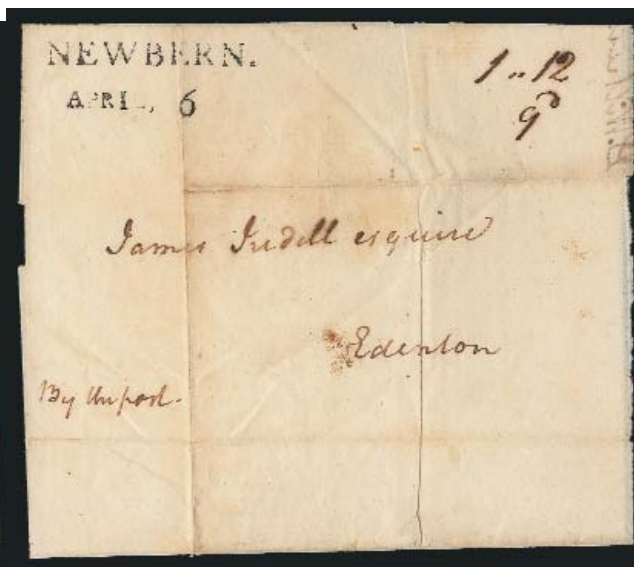 NEWBERN.
APRIL, 6
1 .. 12
9d
James Iredell esquire
Edenton
By the post.